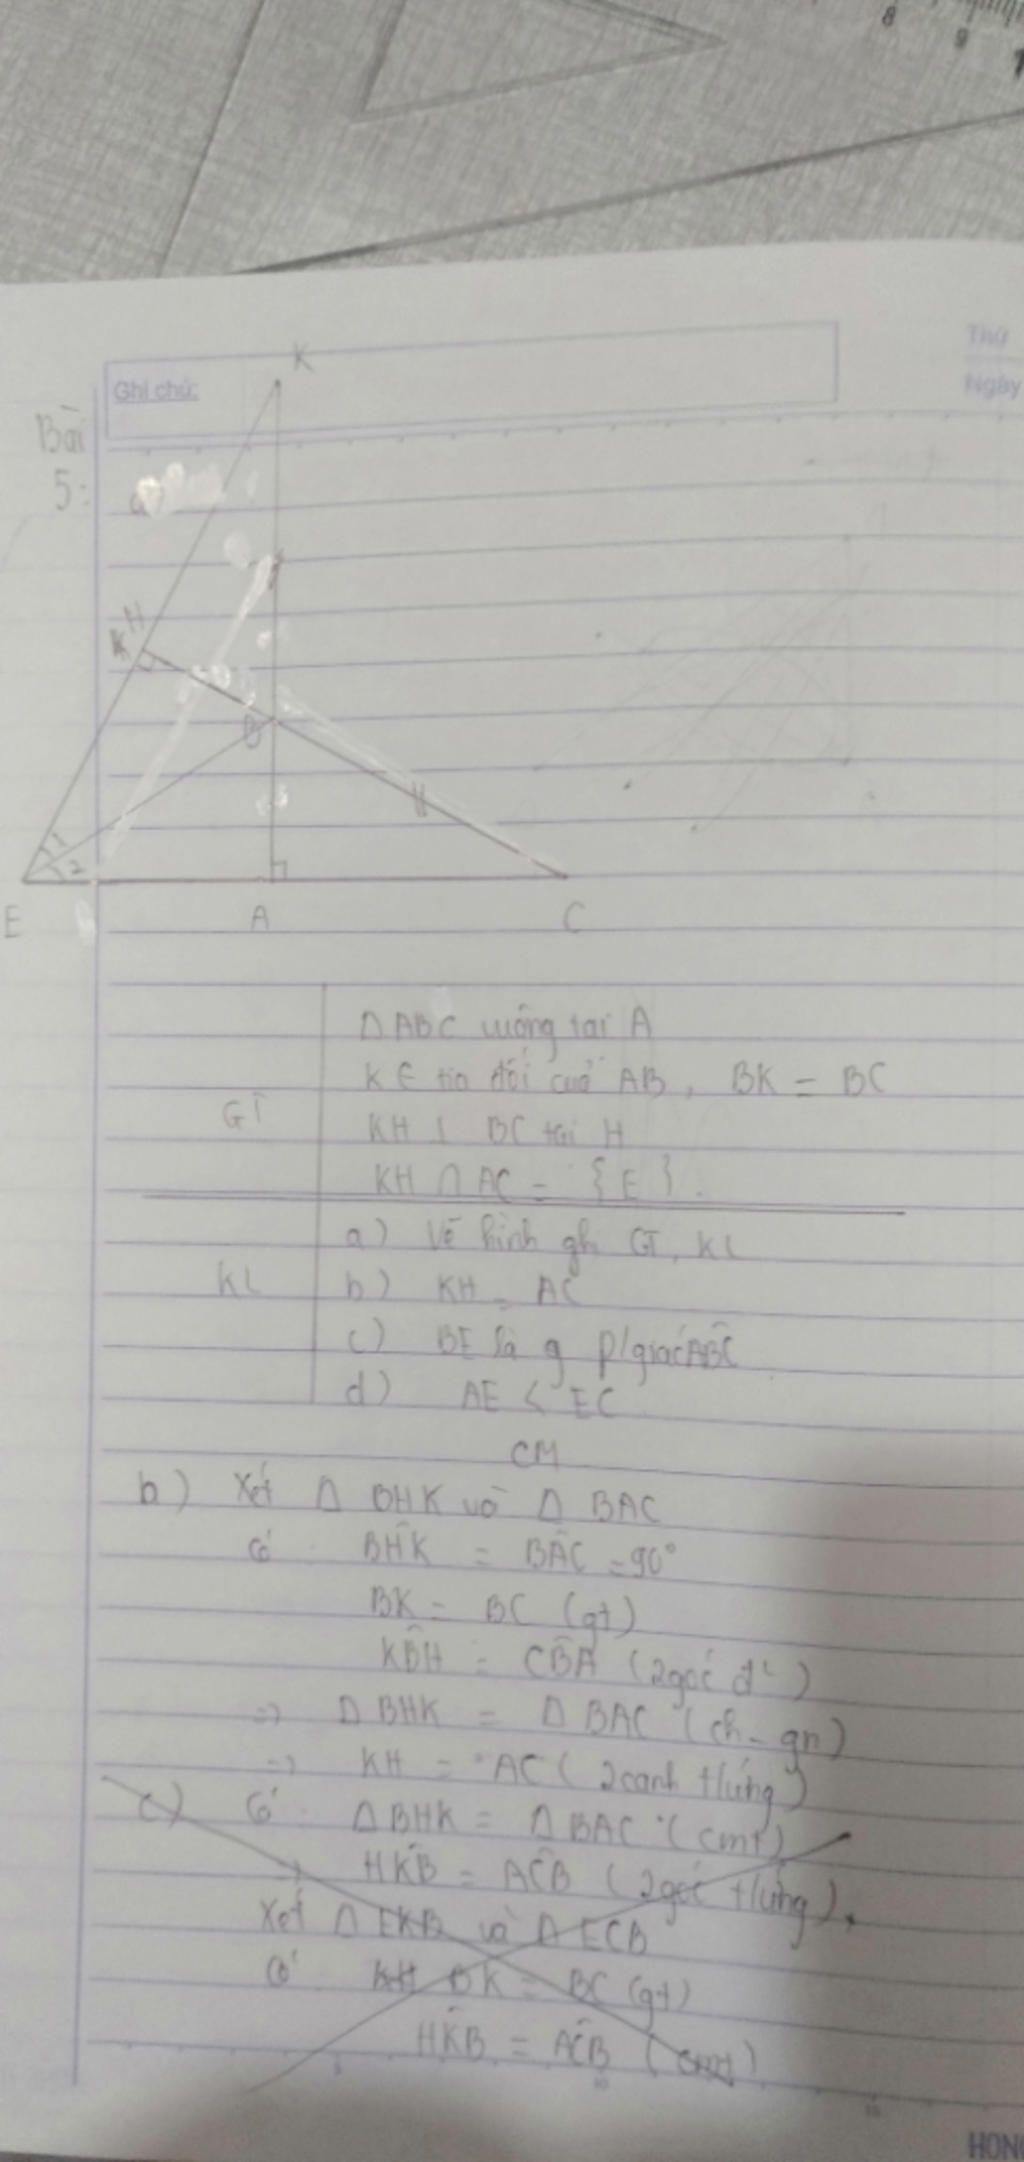 8
9
Thứ
Ghi chú:
Ngày
K
Bài
5:
a)
H
K
B
H
1
2
E
A
C
Δ ABC vuông tại A
K ∈ tia đối của AB, BK = BC
GT
KH ⊥ BC tại H
KH ∩ AC = {E}.
a) Vẽ hình ghi GT, KL
KL
b) KH = AC
c) BE là g p/giác ABC
d) AE < EC
CM
b) Xét Δ BHK và Δ BAC
có: BHK = BAC = 90°
BK = BC (gt)
KBH = CBA (2 góc đ²)
=> Δ BHK = Δ BAC (ch - gn)
=> KH = AC (2 cạnh t/ứng)
c) Có: Δ BHK = Δ BAC (cmt)
=> HKB = ACB (2 góc t/ứng).
Xét Δ EKB và Δ ECB
Có: KH BK = BC (gt)
HKB = ACB (cmt)
5
10
15
HONG